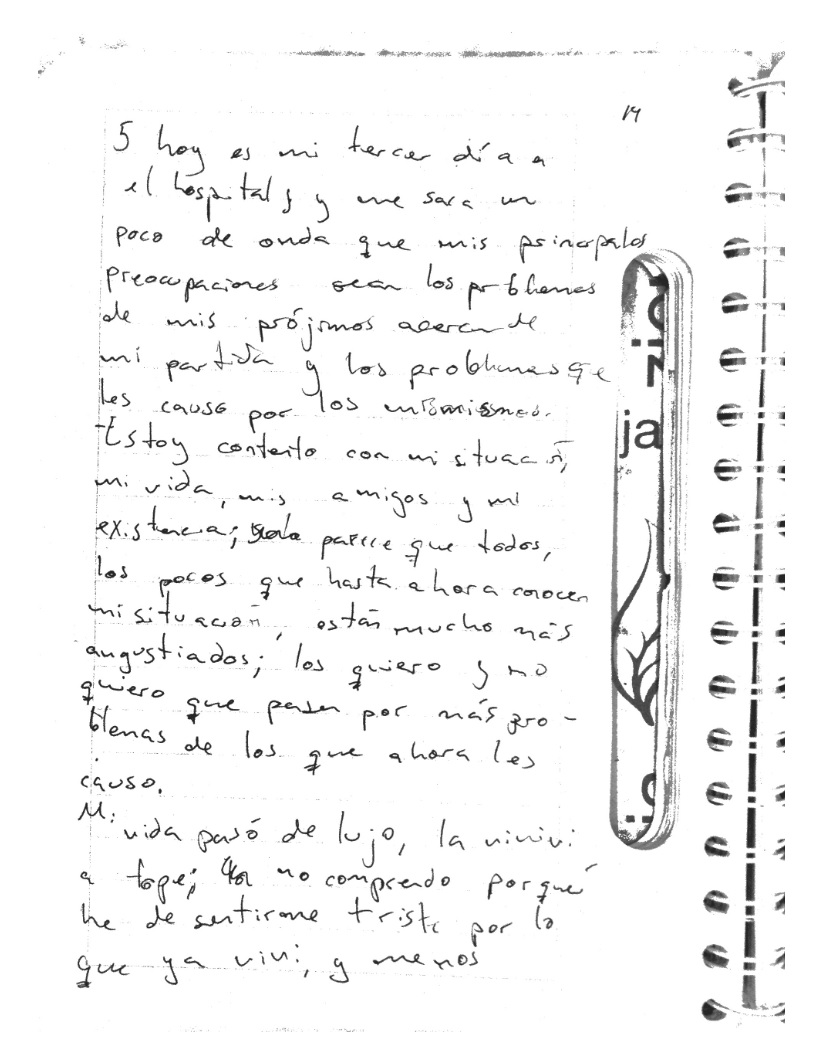 14
5 hoy es mi tercer día a
el hospital y y me saca un
poco de onda que mis principales
preocupaciones sean los problemas
de mis prójimos acerca de
mi partida y los problemas qe
les causo por los
Estoy contento con mi situación,
mi vida, mis amigos y mi
existencia; parece que todos,
los pocos que hasta ahora conocen
mi situación, están mucho más
angustiados; los quiero y no
quiero que pasen por más pro-
blemas de los que ahora les
causo.
Mi
vida pasó de lujo, la viviví
a tope; no comprendo porqué
he de sentirme triste por lo
que ya viví, y menos
ja